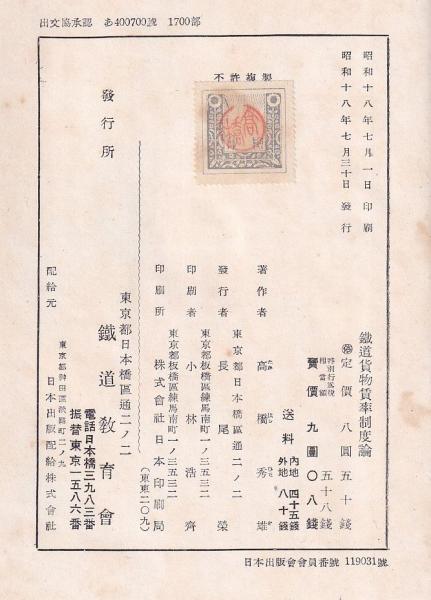 出文協承認 あ400700號 1700部
昭和十八年七月一日印刷
昭和十八年七月三十日發行
不許複製
鐵道貨物賃率制度論
定價 八圓五十錢
特別行爲税相當額 五十八錢
賣價 九圓〇八錢
送料 內地 四十五錢
外地 八十錢
著作者 高橋秀雄
東京都日本橋區通二ノ二
發行者 長尾榮
東京都板橋區練馬南町一ノ三五三二
印刷者 小林浩齊
東京都板橋區練馬南町一ノ三五三二
印刷所 株式會社日本印刷局
(東東二〇九)
發行所
東京都日本橋區通二ノ二
鐵道教育會
電話日本橋三九八三番
振替東京一五八六番
配給元
東京都神田區淡路町二ノ九
日本出版配給株式會社
日本出版會會員番號 119031號